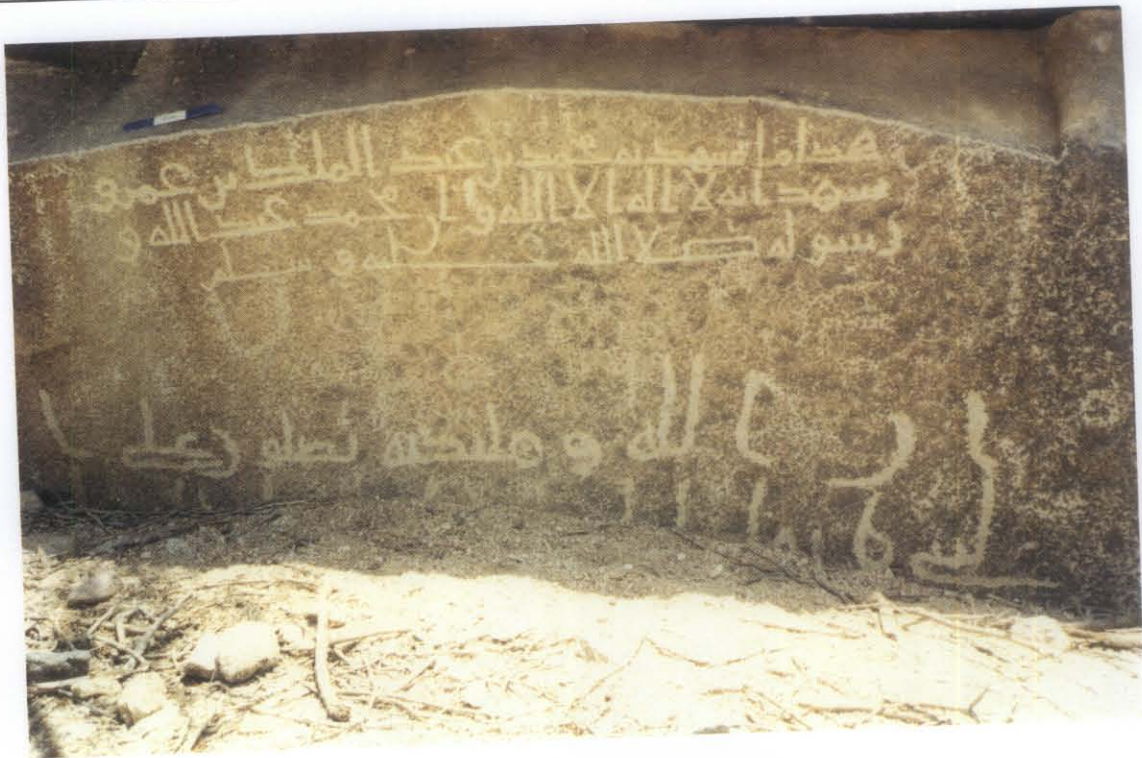 هذا ما شهد به محمد بن عبد الملك بن عمرو
شهد انه لا اله الا الله و ان محمد عبد الله و
رسوله صلا الله عليه و سلم
ان الله و ملئكته يصلون على ا
لنبي